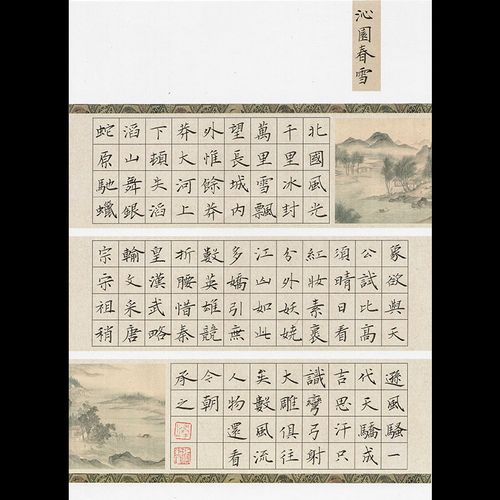 沁園春雪
北國風光
千里冰封
萬里雪飄
望長城內
外惟餘莽
莽大河上
下頓失滔
滔山舞銀
蛇原馳蠟
象欲與天
公試比高
須晴日看
紅妝素裹
分外妖嬈
江山如此
多嬌引無
數英雄競
折腰惜秦
皇漢武略
輸文采唐
宗宋祖稍
遜風騷一
代天驕成
吉思汗只
識彎弓射
大雕俱往
矣數風流
人物還看
今朝
承之